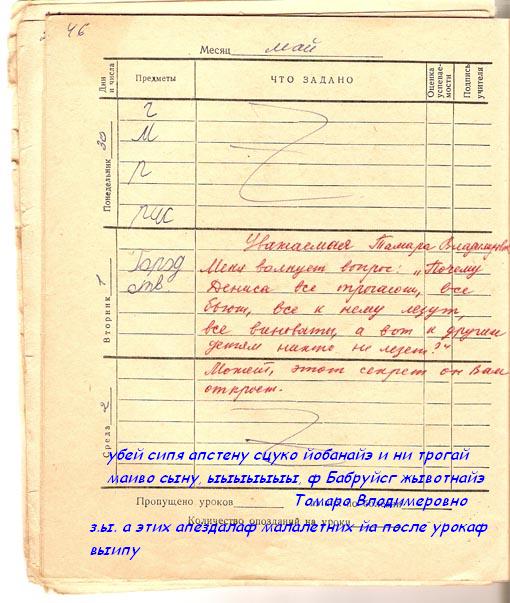 46
Месяц май
Дни и числа
Предметы
ЧТО ЗАДАНО
Оценка успеваемости
Подпись учителя
Понедельник 30
Ч
М
Р
рис
Вторник 1
ств.
Уважаемая Тамара Владимировна
Меня волнует вопрос: „Почему
Дениса все трогают, все
бьют, все к нему лезут,
все виноваты, а вот к другим
детям никто не лезет?"
Может, этот секрет он Вам
откроет.
Среда 2
убей сипя апстену сцуко йобанайэ и ни трогай
маиво сыну, ыыыыыыыы, ф Бабруйсг жывотнайэ
Пропущено уроков
Томара Владимеровно
Количество опозданий на уроки
з.ы. а этих апездалаф малалетних йа после урокаф
выипу